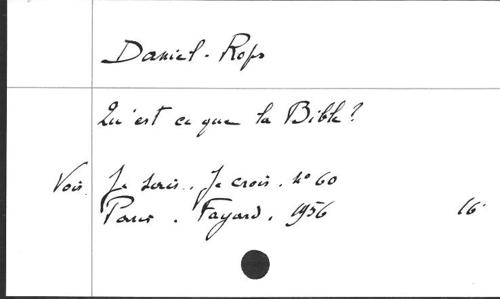 Daniel-Rops
Qu'est ce que la Bible?
Voir Je sais. Je crois. n° 60
Paris. Fayard. 1956 16°